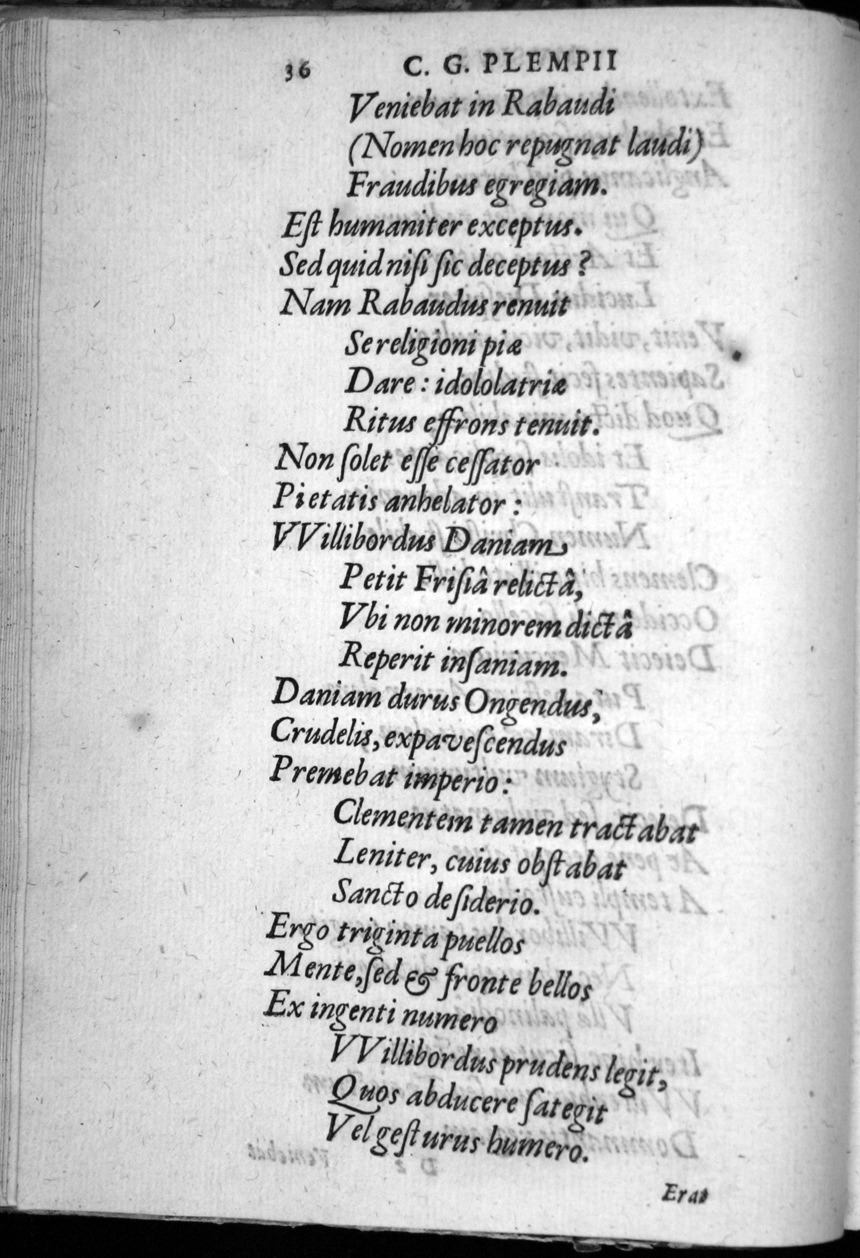 36 C. G. PLEMPII
Veniebat in Rabaudi
(Nomen hoc repugnat laudi)
Fraudibus egregiam.
Eſt humaniter exceptus.
Sed quid niſi ſic deceptus?
Nam Rabaudus renuit
Se religioni piæ
Dare: idololatriæ
Ritus effrons tenuit.
Non ſolet eſſe ceſſator
Pietatis anhelator:
VVillibordus Daniam
Petit Friſiâ relictâ,
Vbi non minorem dictâ
Reperit inſaniam.
Daniam durus Ongendus,
Crudelis, expaveſcendus
Premebat imperio:
Clementem tamen tractabat
Leniter, cuius obſtabat
Sancto deſiderio.
Ergo triginta puellos
Mente, ſed & fronte bellos
Ex ingenti numero
VVillibordus prudens legit,
Quos abducere ſategit
Vel geſturus humero.
Erat